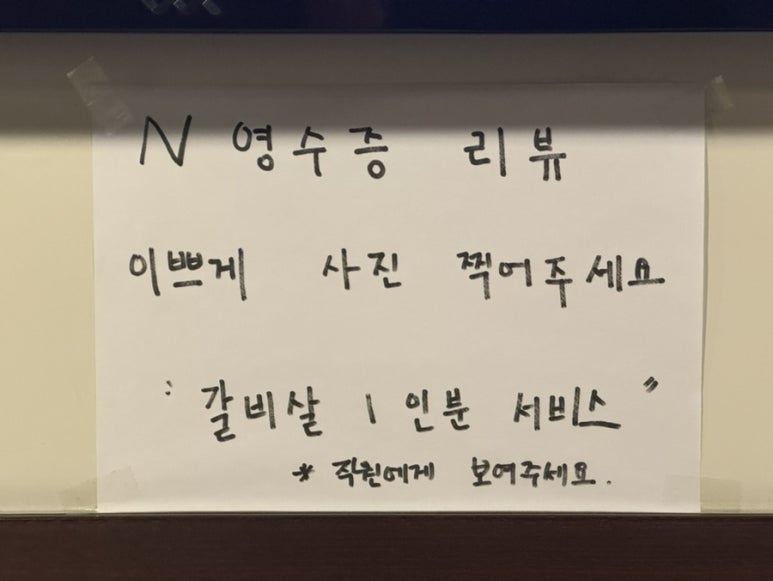 N 영수증 리뷰
이쁘게 사진 찍어주세요
" 갈비살 1인분 서비스 "
* 직원에게 보여주세요.